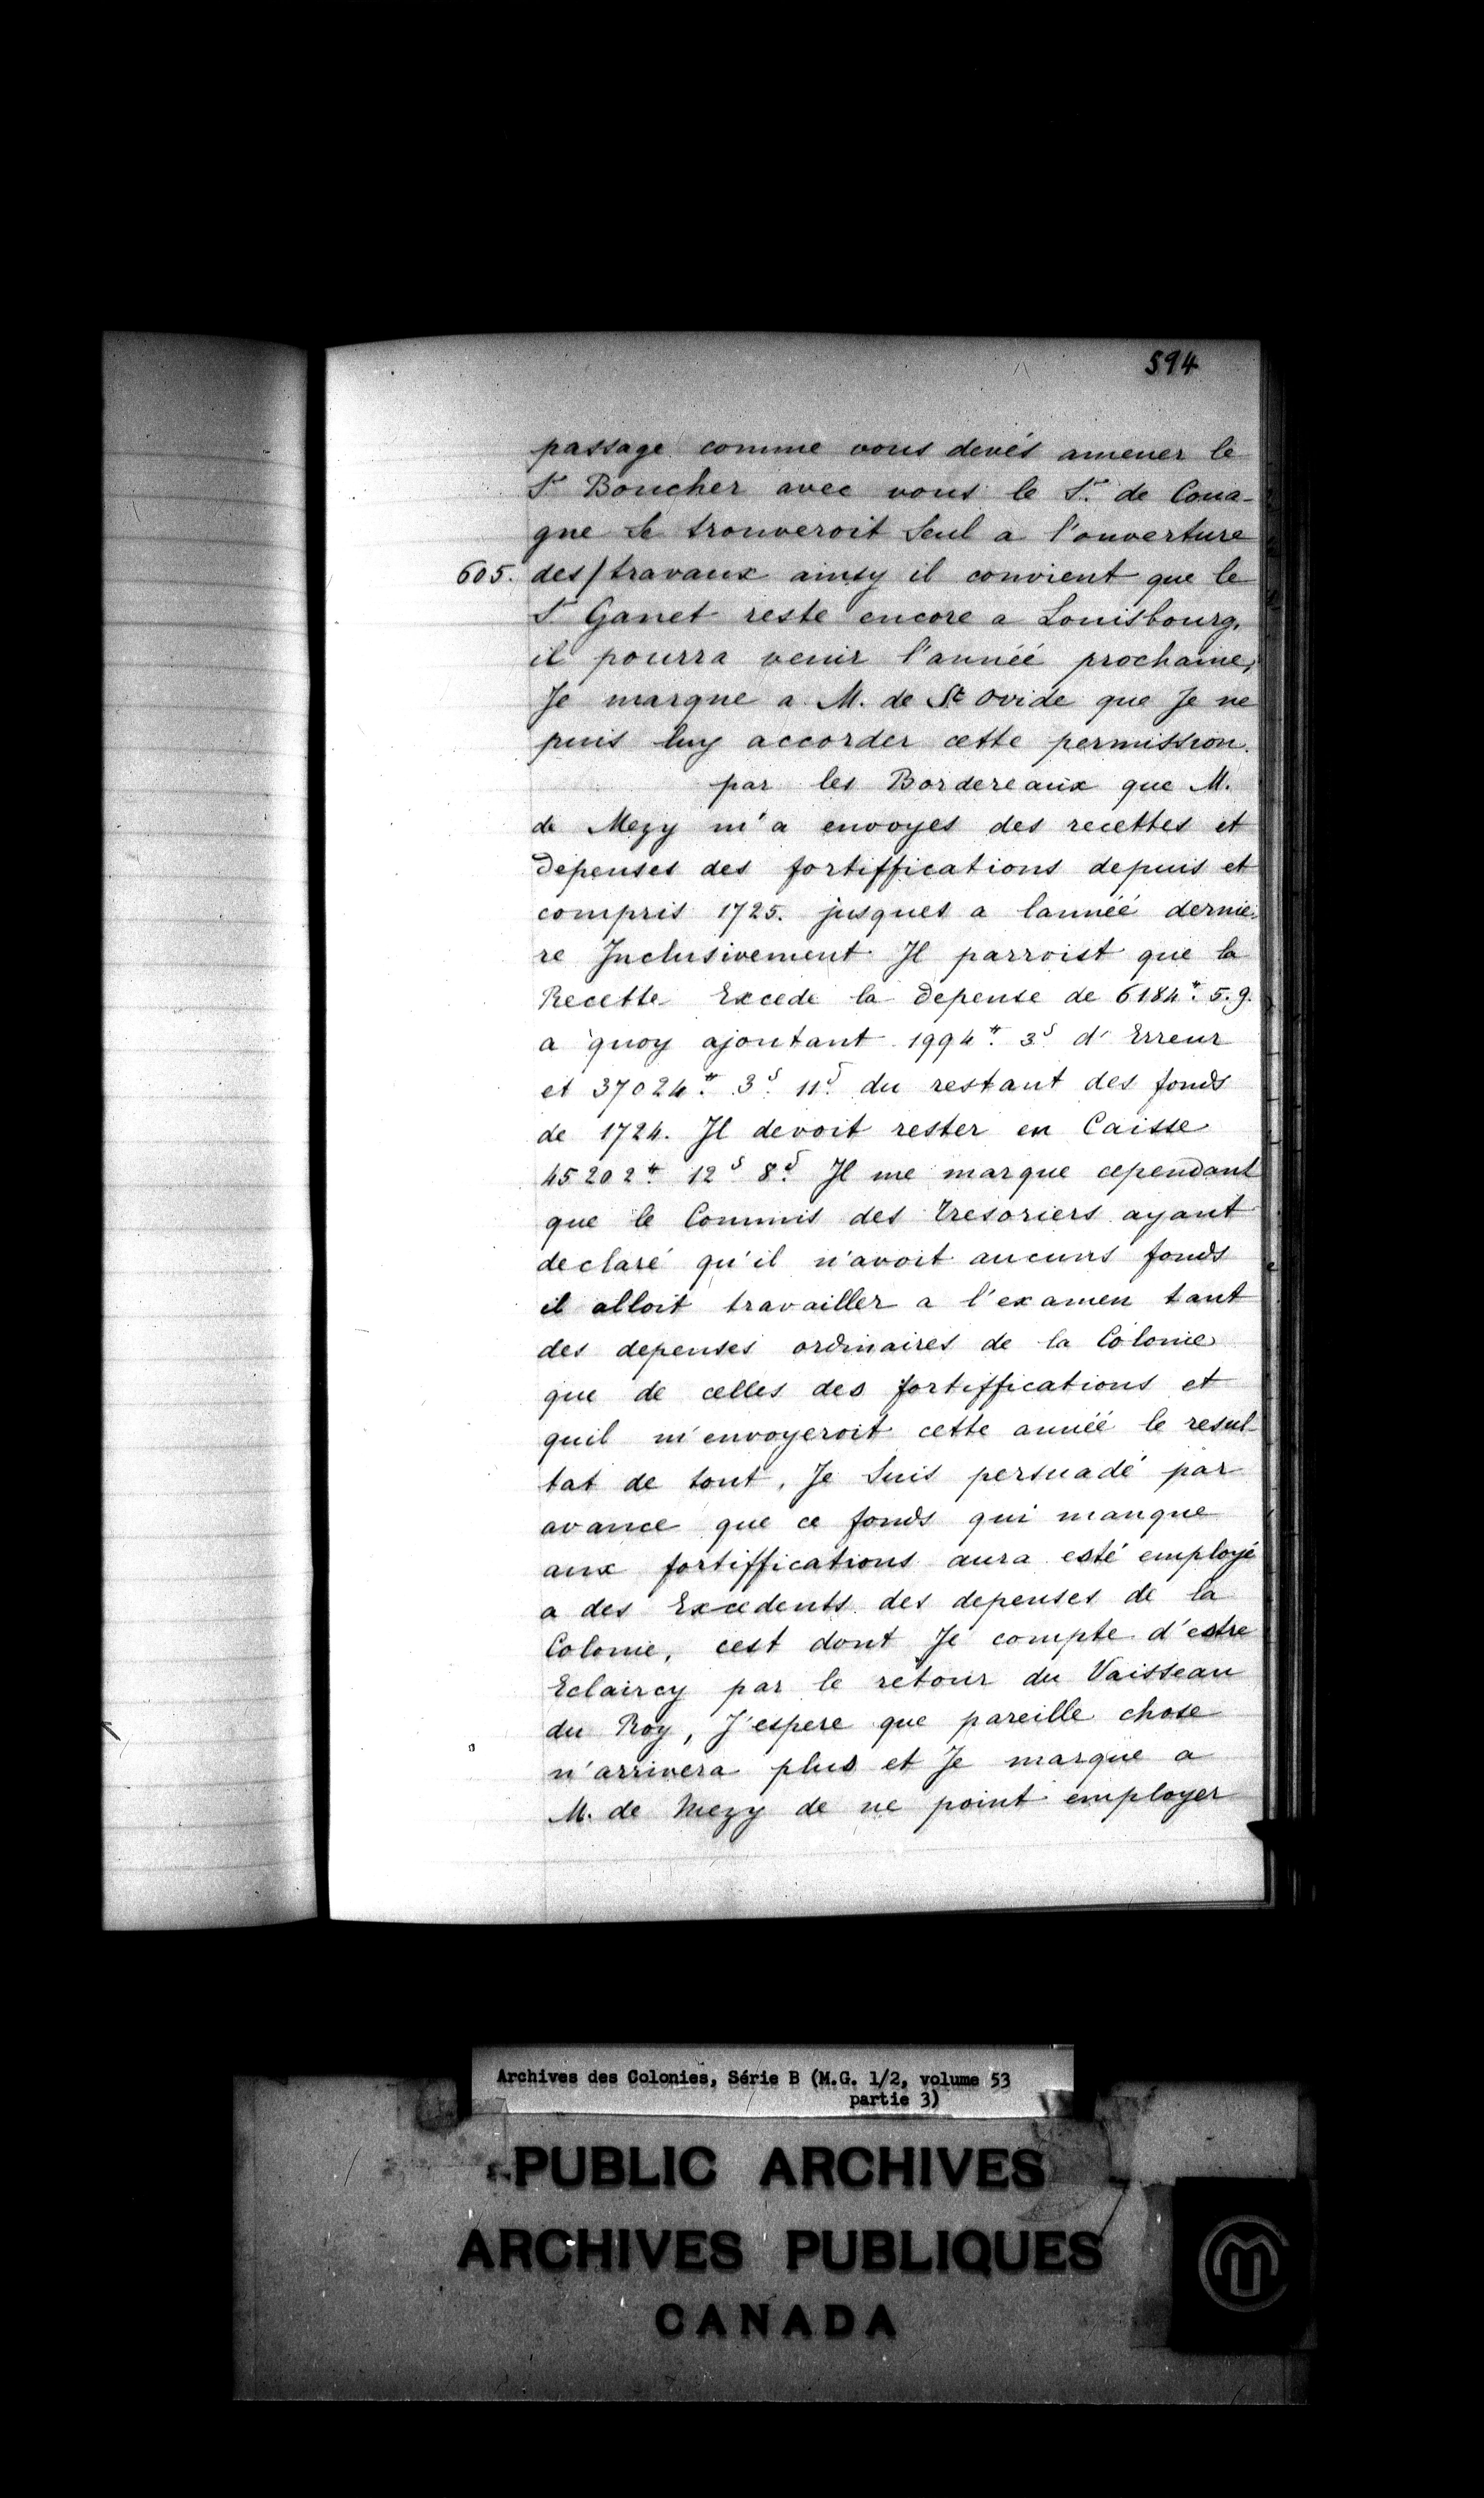 594
passage comme vous devés amener le
Sr Boucher avec vous le Sr. de Coua-
gne Se trouveroit Seul a l'ouverture
605. des/travaux ainsy il convient que le
Sr Ganet reste encore a Louisbourg,
il pourra venir l'année prochaine,
Je marque a M. de St Ovide que Je ne
puis luy accorder cette permission.
par les Bordereaux que M.
de Mezy m'a envoyes des recettes et
Depenses des fortiffications depuis et
compris 1725. jusques a lannéé dernie-
re Inclusivement Il parroist que la
Recette Excede la Depense de 6184#. 5. 9.
a quoy ajoutant 1994#. 3s. d'Erreur
et 37024#. 3s. 11d. du restant des fonds
de 1724. Il devoit rester en Caisse
45202#. 12s 8d. Il me marque cependant
que le Commis des Tresoriers ayant
declaré qu'il n'avoit aucuns fonds
il alloit travailler a l'examen tant
des depenses ordinaires de la Colonie
que de celles des fortiffications et
quil m'envoyeroit cette année le resul-
tat de tout. Je Suis persuadé par
avance que ce fonds qui manque
aux fortiffications aura esté employé
a des Excedents des depenses de la
Colonie, cest dont Je compte d'estre
Eclaircy par le retour du Vaisseau
du Roy, J'espere que pareille chose
n'arrivera plus et Je marque a
M. de Mezy de ne point employer
Archives des Colonies, Série B (M.G. 1/2, volume 53
partie 3)
PUBLIC ARCHIVES
ARCHIVES PUBLIQUES
CANADA